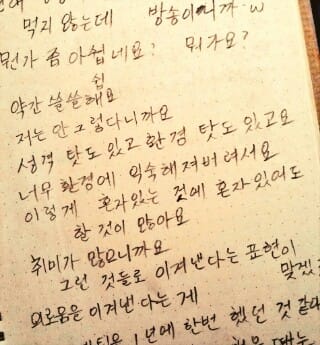 먹지 않는데 방송이니까
뭔가 쫌 아쉽네요? 뭐가요?
쉽
약간 쓸쓸해요
저는 안 그렇다니까요
성격 탓도 있고 환경 탓도 있고요
너무 환경에 익숙해져버려서요
이렇게 혼자있는 것에 혼자 있어도
할 것이 많아요
취미가 많으니까요
그런 것들로 이겨낸다는 표현이
외로움을 이겨낸다는 게 맞겠
1년에 한번 했던 것 같